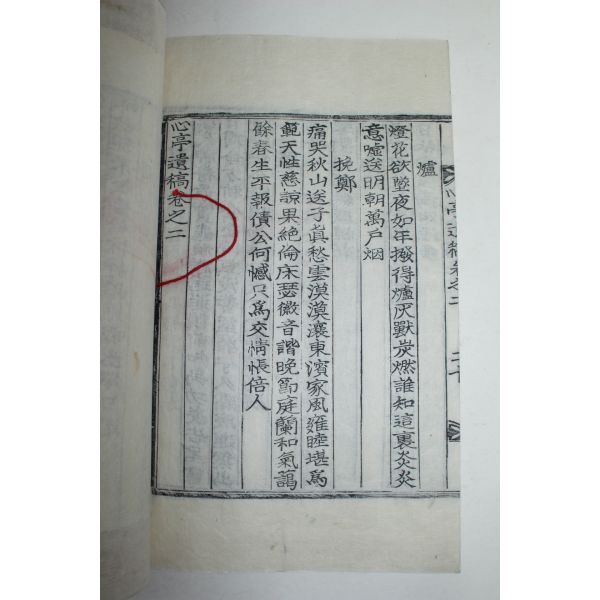 爐
燈花欲墜夜如年撥得爐灰獸炭燃誰知這裏炎炎
意噓送明朝萬戶烟
挽鄭
痛哭秋山送子眞愁雲漠漠瀼東濱家風雍睦堪爲
範天性慈諒果絶倫床瑟徽音諧晩節庭蘭和氣藹
餘春生平報債公何憾只爲交情悵倍人
心亭遺稿卷之二
心亭遺稿卷之二